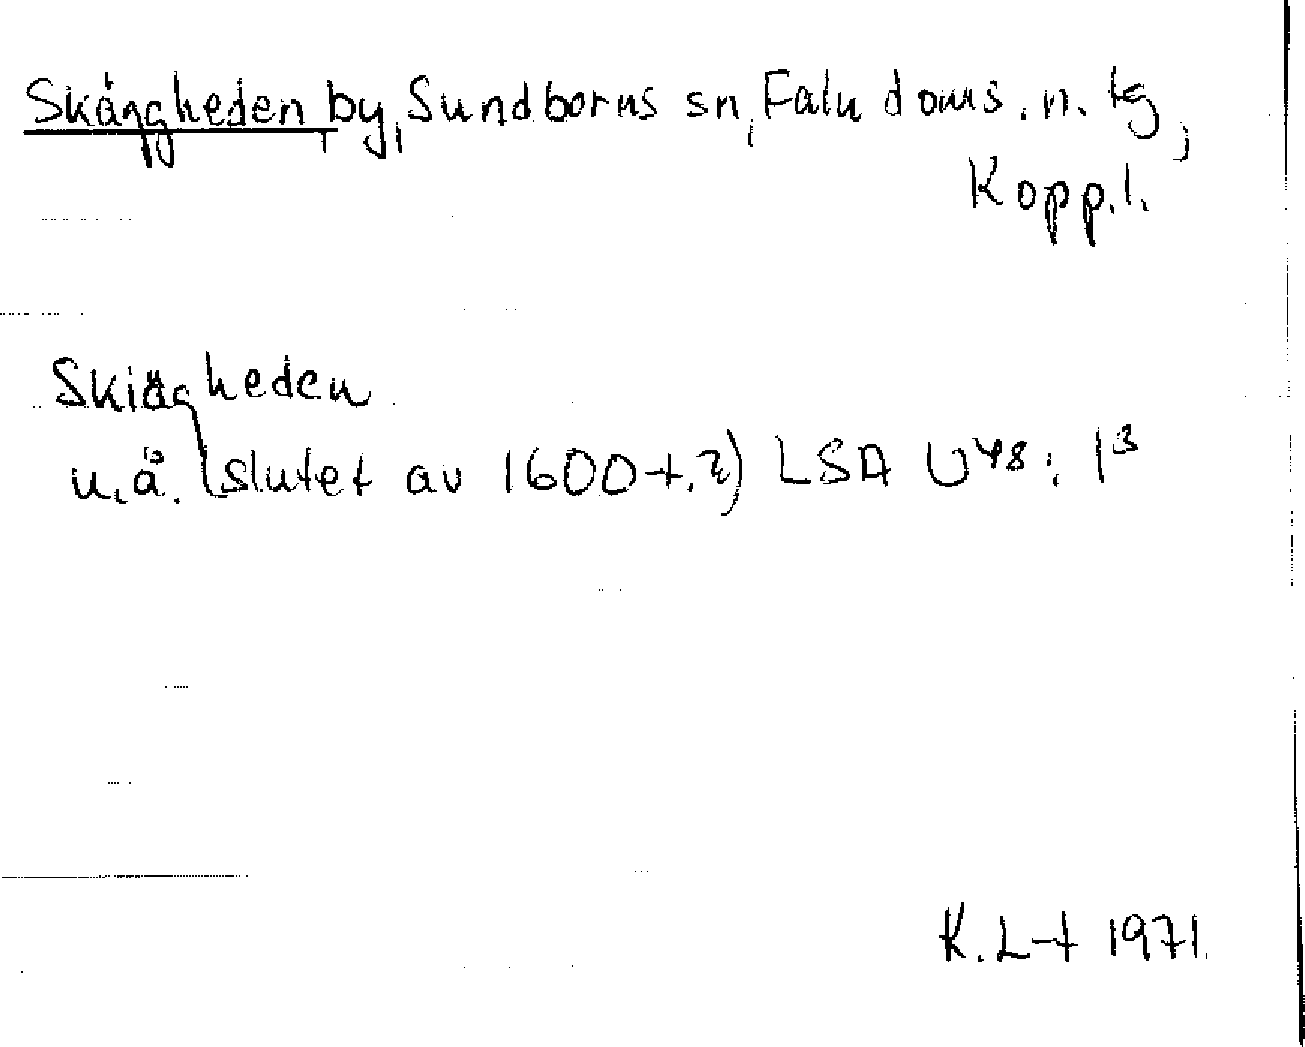 Skäggheden by, Sundborns sn, Falu doms. n. tg,
Kopp. l.
Skiägheden
u.å. (slutet av 1600-t.?) LSA U48: 1³
K. L-t 1971.